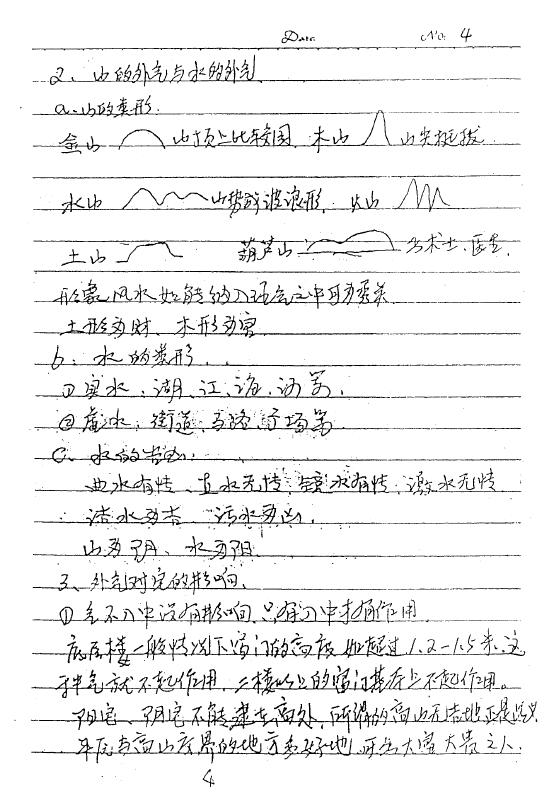 Date No. 4
2、山的外气与水的外气
a、山的类形.
金山 山顶上比较园. 木山 山尖挺拔.
水山 山势成波浪形. 火山
土山 葫芦山 为术士、医生.
形象风水如能纳入场气之中可为
土形为财、木形为官
b、水的类形.
①实水、湖、江、河等.
②虚水:街道、马路、市场等
C、水的吉凶:
曲水有情、直水无情、水有情、激水无情
洁水为吉、污水为凶.
山为阴、水为阳
3、外气对宅的影响.
①气不入中没有影响,只有入中才有作用
底层楼一般情况下窗门的高度,如超过1.2-1.5米,这
中气就不起作用,二楼以上的窗门基本上不起作用。
阳宅、阴宅不能建在高处,所谓的高山无吉地正是
平原与高山交界的地方多好地,可出大富大贵之人.
4